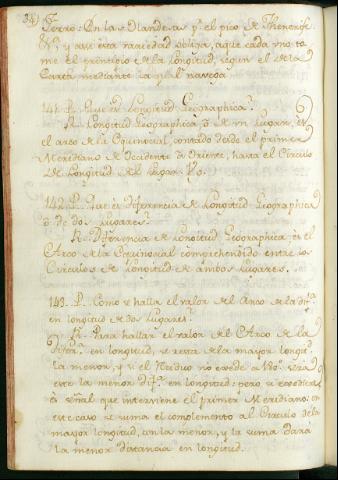 34)
Ferro: En las Olandesas pr. el pico de Thenerife.
Y aqui esta variedad obliga, a que cada uno to
me el principio de la Longitud, segun el de la
Carta mediante la qual navega.
141. P. Que es Longitud Geographica?
R. Longitud Geographica ô de un Lugar, es
el arco de la Equinocial, contado desde el primer
Meridiano de Occidente â Oriente, hasta el Circulo
de Longitud del Lugar
142. P. Que es diferencia de Longitud Geographica
ô de dos Lugares?
R. Diferencia de Longitud Geographica, es el
Arco de la Equinocial comprehendido entre los
Circulos de Longitud de ambos Lugares.
143. P. Como se halla el valor del Arco de la difa.
en longitud de dos Lugares?
R. Para hallar el valor del Arco de la
difera. en longitud, se resta de la mayor longitd.
la menor, y si el Residuo no excede a 180 será
este la menor difa. en longitud: pero si excediere
es señal que interviene el primer Meridiano: en
este caso se suma el complemento al Circulo de la
mayor longitud, con la menor, y la suma dará
la menor distancia en longitud.